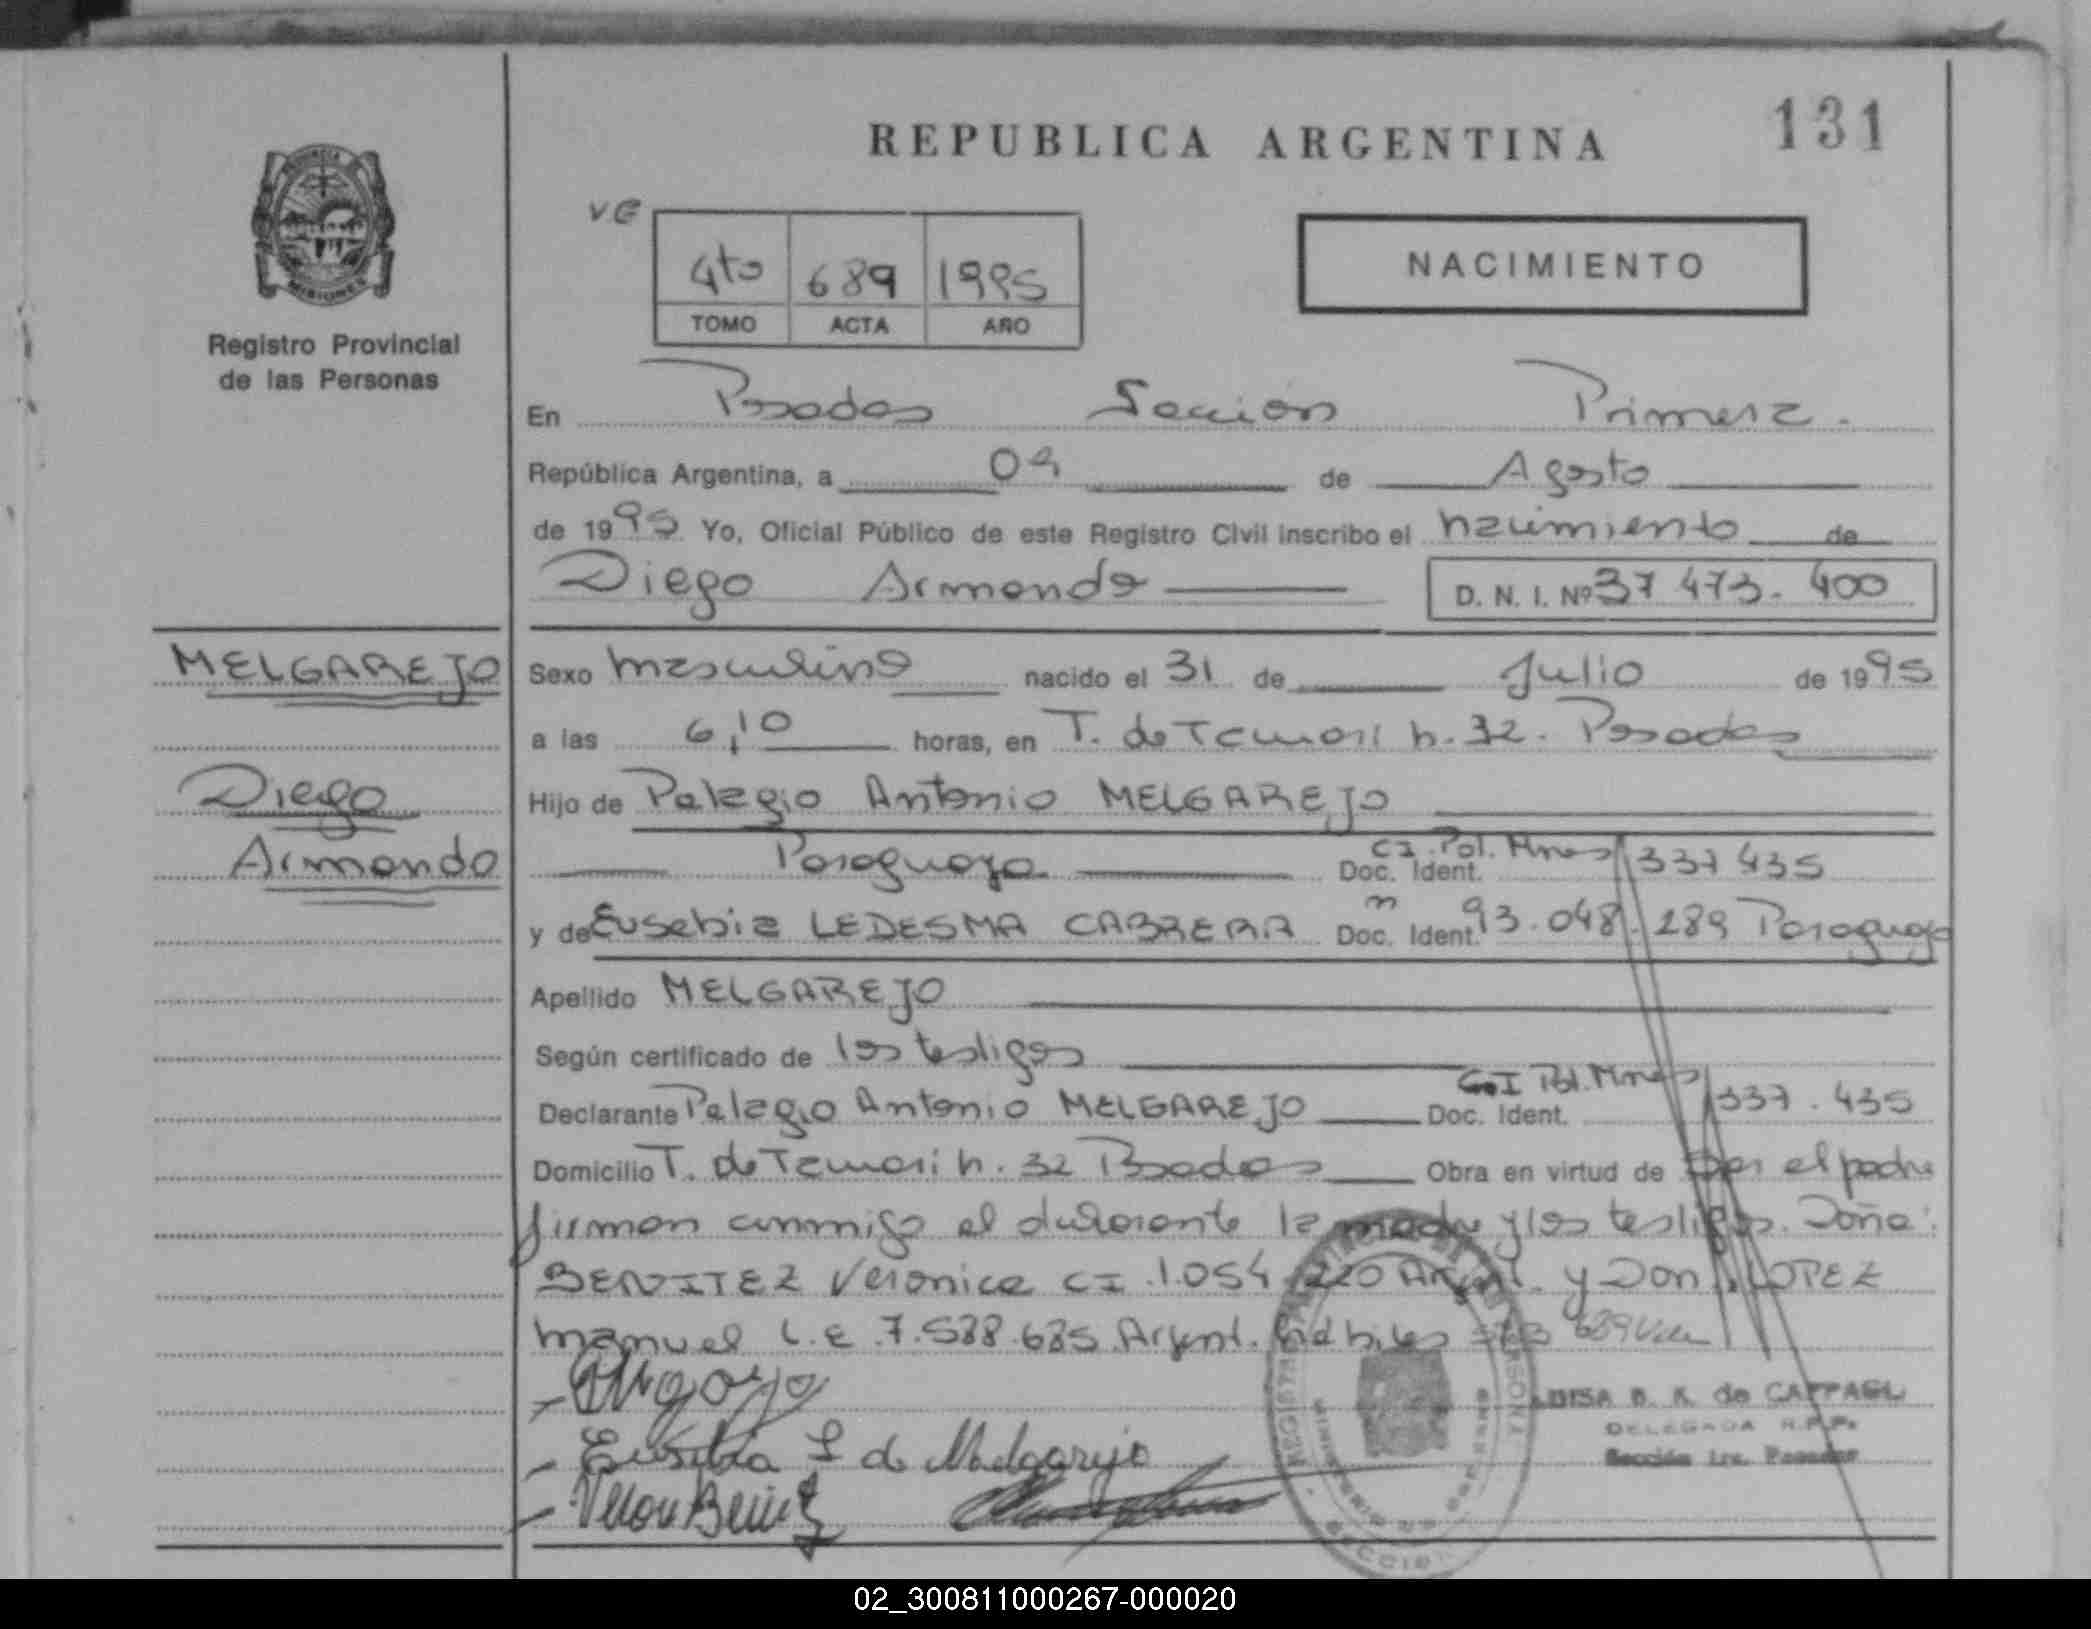 REPUBLICA ARGENTINA
131
PROVINCIA
MISIONES
Registro Provincial
de las Personas
VE
4to 689 1995
TOMO ACTA AÑO
NACIMIENTO
En Posadas Sección Primera.
República Argentina, a 04 de Agosto
de 1995 Yo, Oficial Público de este Registro Civil inscribo el nacimiento de
Diego Armando D. N. I. Nº 37 473. 400
MELGAREJO
Sexo masculino nacido el 31 de Julio de 1995
a las 6,10 horas, en T. de Tacuari h. 32. Posadas
Diego
Hijo de Pelagio Antonio MELGAREJO
Armando
Paraguayo C.I. Pol. Mnes Doc. Ident. 337 435
y de Eusebia LEDESMA CABRERA Doc. Ident. 93.048.289 Paraguaya
Apellido MELGAREJO
Según certificado de los testigos
Declarante Pelagio Antonio MELGAREJO C.I Pol. Mnes Doc. Ident. 337.435
Domicilio T. de Tacuari h. 32 Posadas Obra en virtud de ser el padre
firman conmigo el declarante la madre y los testigos. Doña:
BENITEZ Veronica CI 1.054.220 Argent. y Don LOPEZ
Manuel L.E 7.588.685 Argent.
Eusebia L de Melgarejo
LUISA B. K. de CAPPAGLI
DELEGADA R.P.P.
Sección 1ra. Posadas
02_300811000267-000020